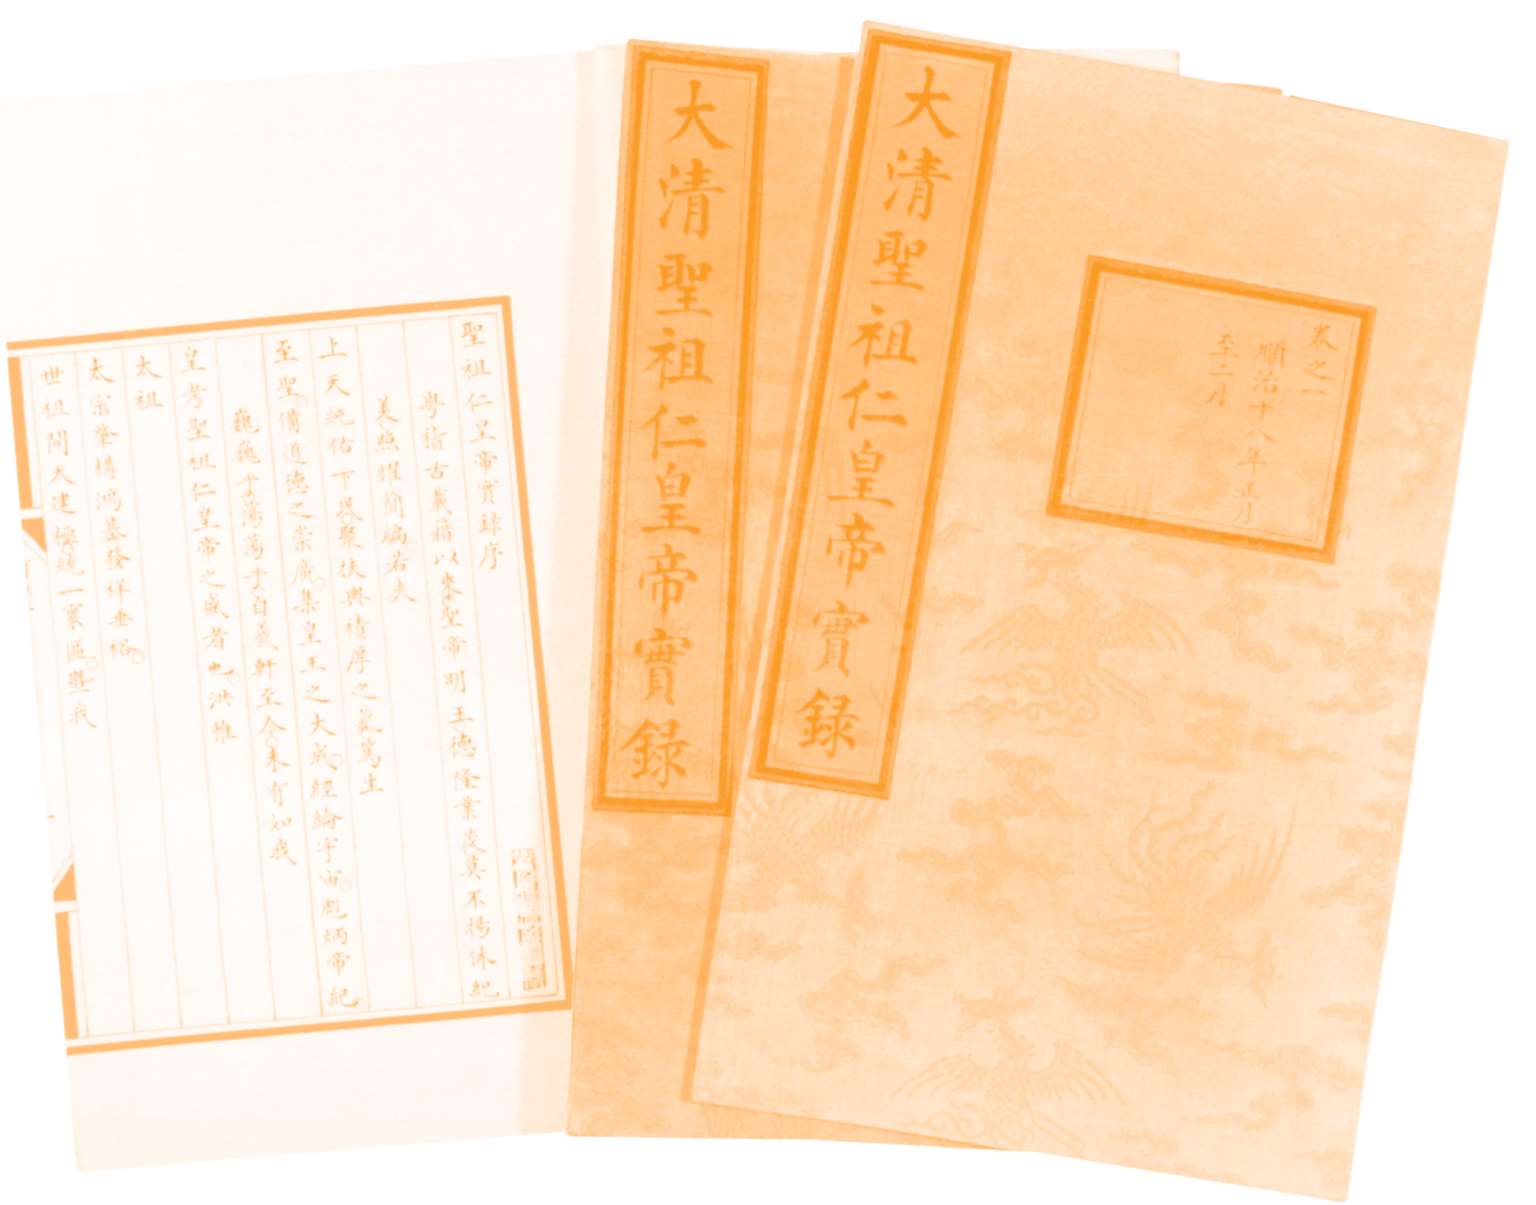 卷之一
順治十八年正月
至二月
大清聖祖仁皇帝實錄
大清聖祖仁皇帝實錄
聖祖仁皇帝實錄序
粵稽古載籍以來聖帝明王德隆業茂莫不揚休紀
美照耀簡編若夫
上天純佑下聚扶輿積厚之氣篤生
至聖備道德之崇廣集皇王之大成經綸宇宙彪炳帝紀
巍巍乎蕩蕩乎自羲軒至今未有如我
皇考聖祖仁皇帝之盛者也洪惟
太祖
太宗肇構鴻基發祥垂裕
世祖開天建極統一寰區曁我